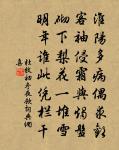 淮陽多病偶求歡
客袖侵霜與燭盤
砌下梨花一堆雪
明年誰此凭欄干
杜牧初冬夜飲詞典網
集